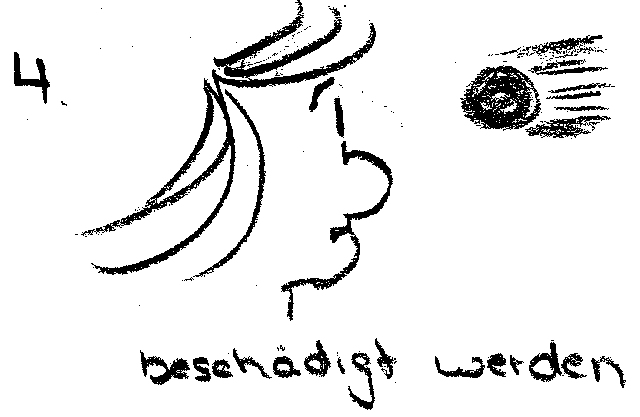 4
beschädigt werden